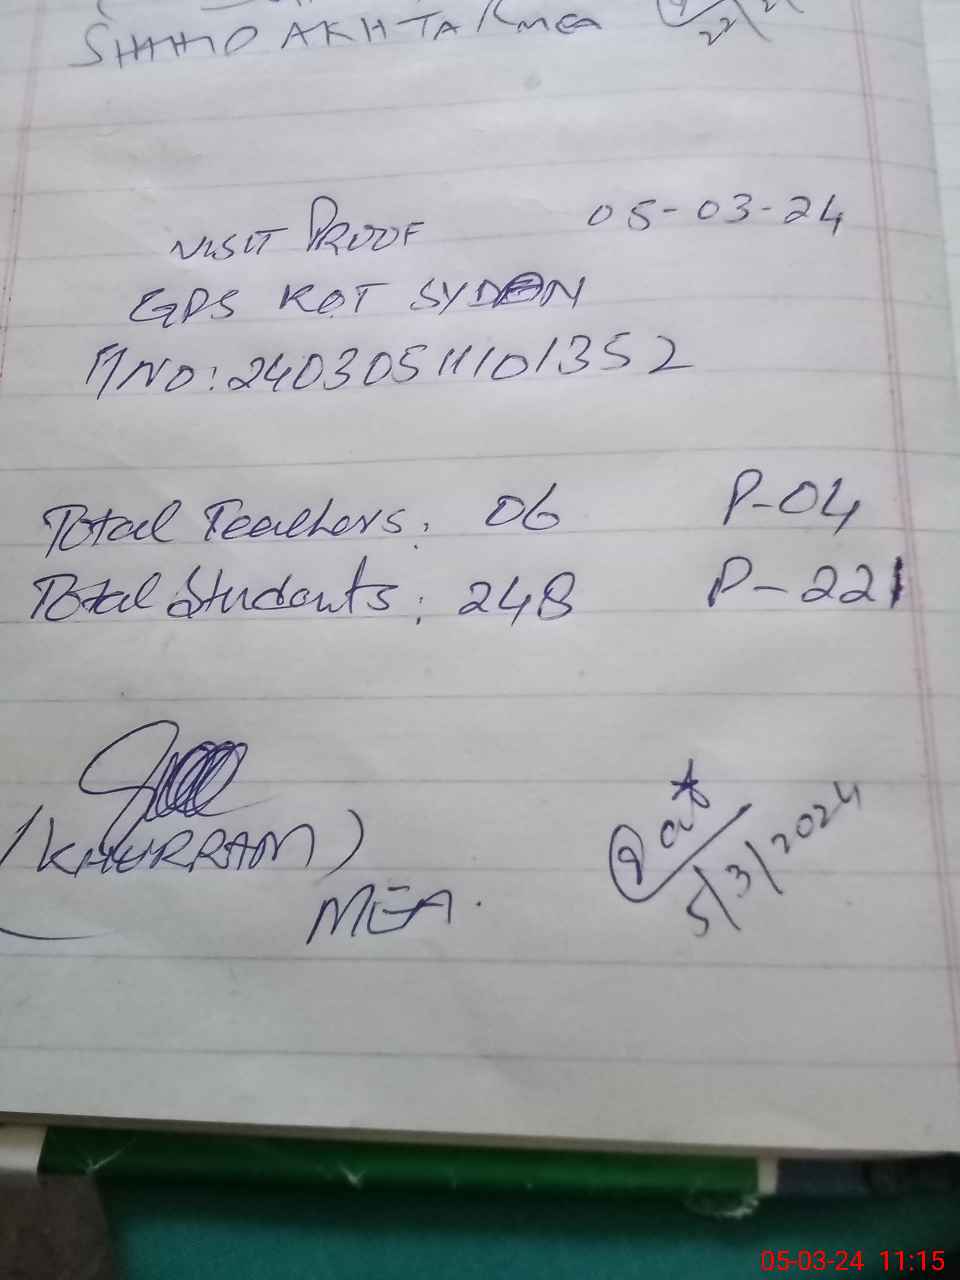 AKHTA/mea
VISIT PROOF 05-03-24
GPS KOT SYDAN
A NO: 24030511101352
Total Teachers: 06 P-04
Total Students: 248 P-221
(KHURRAM)
MEA.
5/3/2024
05-03-24 11:15